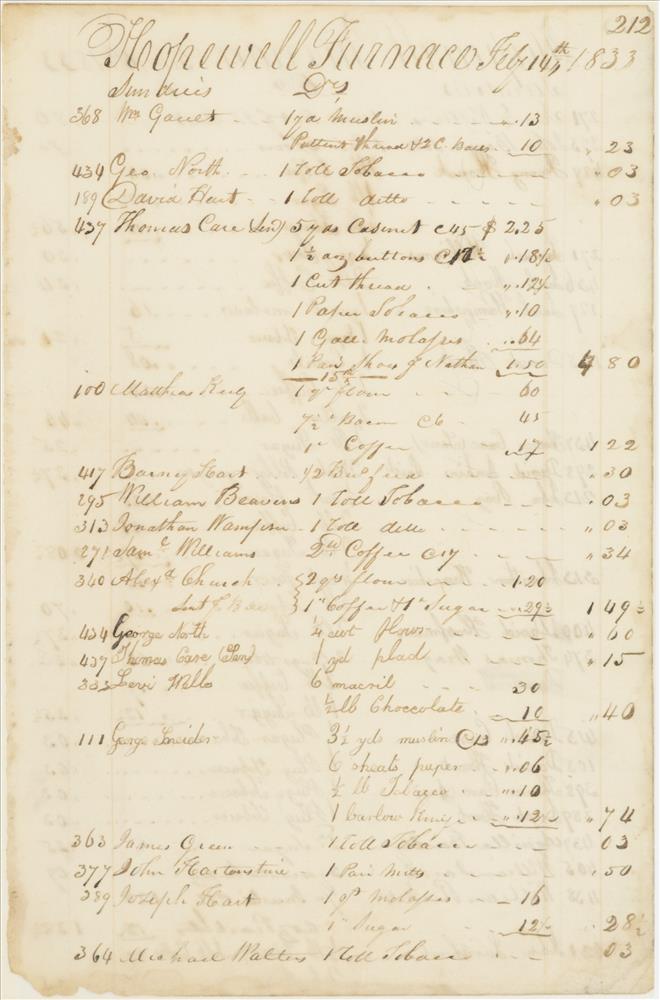 212
Hopewell Furnace Feby 14th 1833
Sundries Drs
368 Wm Gauct 1 yd Muslin " .13
Pattent thread & 2 C. 10 " 23
434 Geo. North 1 Toll Tobacco " 03
189 David Hart 1 Toll ditto " 03
437 Thomas Care (Sen) 5 yds Casinet @45 $ 2.25
1½ doz buttons @12½ " .18¾
1 Cut thread " .12½
1 Paper Tobacco " .10
1 Gall. Molasses .. 64
1 Pair Shoes Nathan 1.50 4 80
15th
100 Mathias 1 qr flour 60
7½ " Bacon @6 45
1 " Coffee 17 1 22
417 Barney Hart 1/2 " .30
295 William Beavens 1 Toll Tobacco " 03
313 Jonathan Wampsin 1 Toll ditto " 03
271 Saml Williams 2 lb Coffee @17 " 34
340 Alexd. Church 2 qrs flour 1.20
1 " Coffee & 1 " Sugar " .29½ 1 49½
434 George North ¼ cwt flour " 60
437 Thomas Care (Sen) 1 yd plad " 15
333 Levi Wells 6 macril 30
½ lb Choccolate 10 " 40
111 George Sneider 3½ yds muslin @13 " .45½
6 sheats paper " .06
½ lb Tobacco " .10
1 barlow Knife " .12½ " 74
363 James Green 1 Toll Tobacco 03
377 John Hartenstine 1 Pair Mitts .50
389 Joseph Hart 1 qt Molasses 16
1 " Sugar 12½ " 28½
364 Michael Walters 1 Toll Tobacco " 03